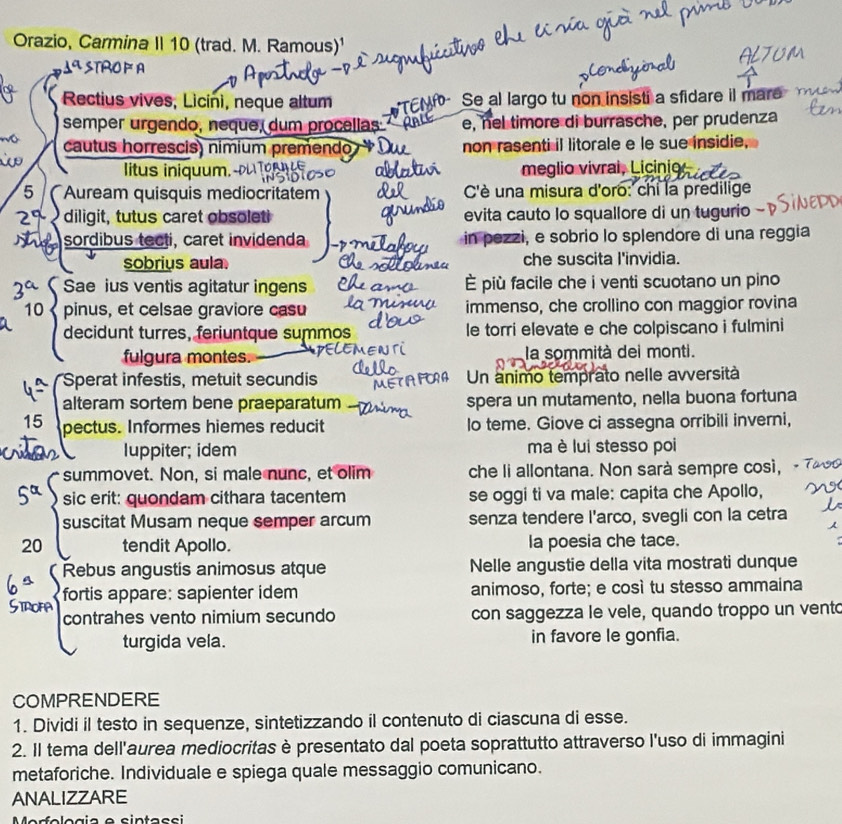 Orazio, Carmina II 10 (trad. M. Ramous)¹
è significativo che ci sia già nel primo
1ª STROFA
Apostrofe
condizionali
ALTUM
Rectius vives, Licini, neque altum
semper urgendo, neque, dum procellas
TEMPO-RALE
cautus horrescis, nimium premendo
Due ablativi del gerundio
litus iniquum.
LITORALE INSIDIOSO
5 Auream quisquis mediocritatem
2ª strofa
diligit, tutus caret obsoleti
sordibus tecti, caret invidenda
sobrius aula.
metafora che sottolinea che ama la misura d'oro
3ª
Sae ius ventis agitatur ingens
10 pinus, et celsae graviore casu
decidunt turres, feriuntque summos
fulgura montes.
ELEMENTI della METAFORA
4ª
Sperat infestis, metuit secundis
alteram sortem bene praeparatum
anima
15 pectus. Informes hiemes reducit
Iuppiter; idem
5ª
summovet. Non, si male nunc, et olim
sic erit: quondam cithara tacentem
suscitat Musam neque semper arcum
20 tendit Apollo.
6ª STROFA
Rebus angustis animosus atque
fortis appare: sapienter idem
contrahes vento nimium secundo
turgida vela.
Se al largo tu non insisti a sfidare il mare
e, nel timore di burrasche, per prudenza
non rasenti il litorale e le sue insidie,
meglio vivrai, Licinio.
C'è una misura d'oro: chi la predilige
evita cauto lo squallore di un tugurio
SINEDD
in pezzi, e sobrio lo splendore di una reggia
che suscita l'invidia.
È più facile che i venti scuotano un pino
immenso, che crollino con maggior rovina
le torri elevate e che colpiscano i fulmini
la sommità dei monti.
Un animo temprato nelle avversità
spera un mutamento, nella buona fortuna
lo teme. Giove ci assegna orribili inverni,
ma è lui stesso poi
che li allontana. Non sarà sempre così,
se oggi ti va male: capita che Apollo,
senza tendere l'arco, svegli con la cetra
la poesia che tace.
Nelle angustie della vita mostrati dunque
animoso, forte; e così tu stesso ammaina
con saggezza le vele, quando troppo un vento
in favore le gonfia.
COMPRENDERE
1. Dividi il testo in sequenze, sintetizzando il contenuto di ciascuna di esse.
2. Il tema dell'aurea mediocritas è presentato dal poeta soprattutto attraverso l'uso di immagini
metaforiche. Individuale e spiega quale messaggio comunicano.
ANALIZZARE
Morfologia e sintassi